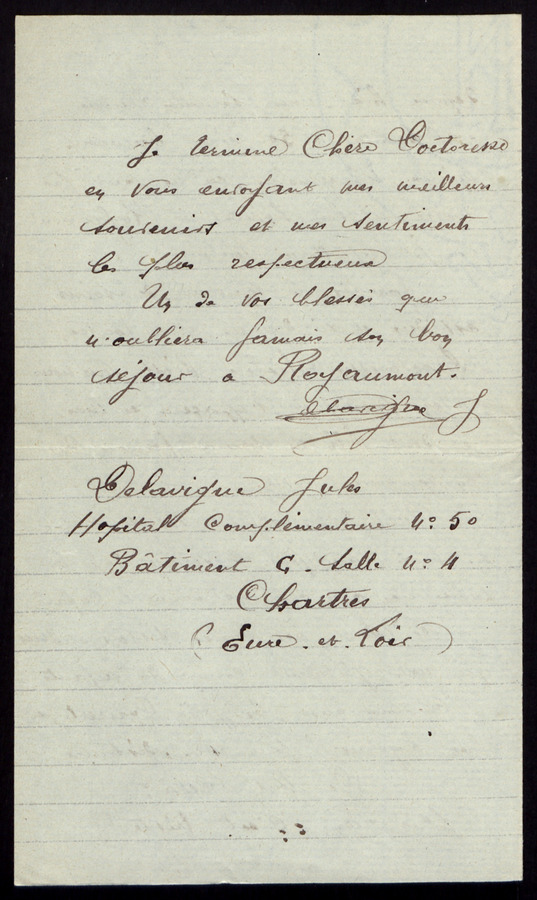 Je termine Chère Doctoresse
en vous envoyant mes meilleurs
souvenirs et mes sentiments
les plus respectueux
Un de vos blessés qui
n'oubliera jamais son bon
séjour a Royaumont.
Delavigne J
Delavigne Jules
Hopital Complémentaire N° 50
Bâtiment G. Salle N° 4
Chartres
(Eure. et. Loir)